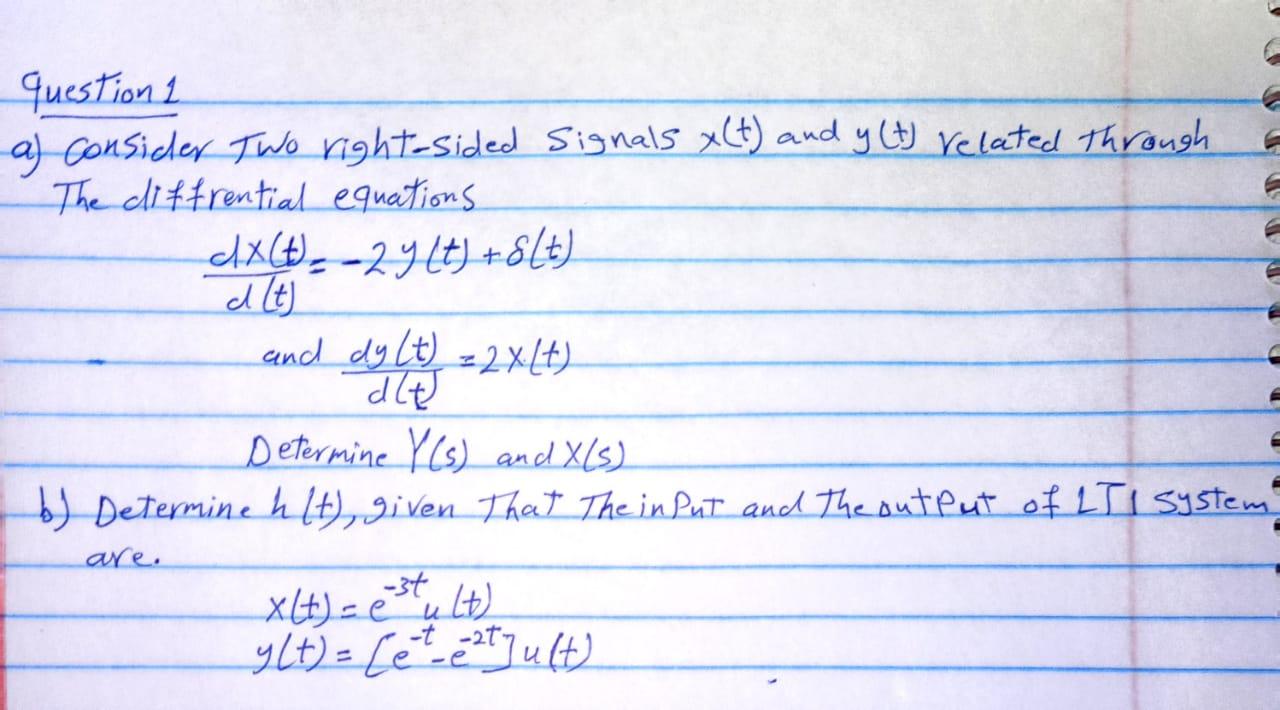 Question 1
a) Consider Two right-sided Signals x(t) and y(t) related through
The diffrential equations
dx(t)/d(t) = -2y(t) + δ(t)
and dy(t)/d(t) = 2x(t)
Determine Y(s) and X(s)
b) Determine h(t), given That The inPut and The outPut of LTI system
are.
x(t) = e^{-3t} u(t)
y(t) = [e^{-t} - e^{-2t}] u(t)